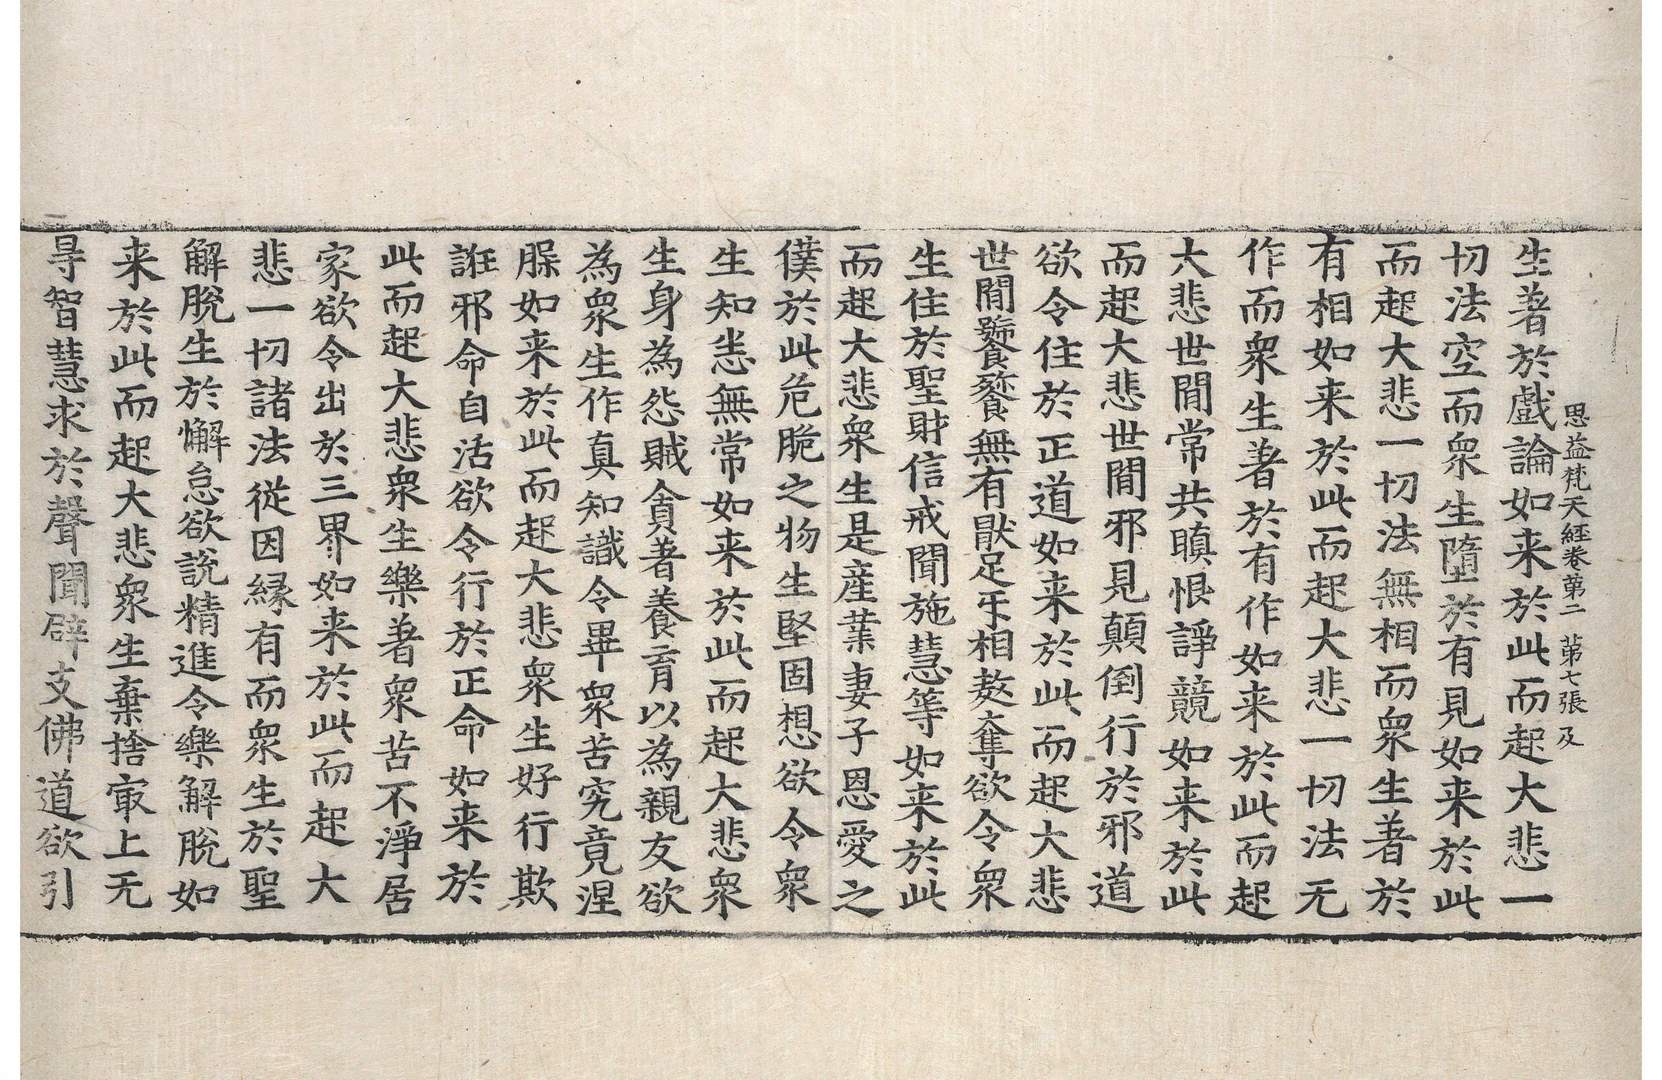 思益梵天經卷第二 第七張 及
生著於戲論如来於此而起大悲一
切法空而衆生墮於有見如来於此
而起大悲一切法無相而衆生著於
有相如来於此而起大悲一切法无
作而衆生著於有作如来於此而起
大悲世閒常共瞋恨諍競如来於此
而起大悲世閒邪見顛倒行於邪道
欲令住於正道如来於此而起大悲
世閒饕餮無有猒足㸦相敖奪欲令衆
生住於聖財信戒聞施慧等如来於此
而起大悲衆生是産業妻子恩愛之
僕於此危脆之物生堅固想欲令衆
生知悉無常如来於此而起大悲衆
生身為怨賊貪著養育以為親友欲
為衆生作真知識令畢衆苦究竟涅
槃如来於此而起大悲衆生好行欺
誑邪命自活欲令行於正命如来於
此而起大悲衆生樂著衆苦不淨居
家欲令出於三界如来於此而起大
悲一切諸法從因緣有而衆生於聖
解脫生於懈怠欲說精進令樂解脫如
来於此而起大悲衆生棄捨㝡上无
㝵智慧求於聲聞辟支佛道欲引